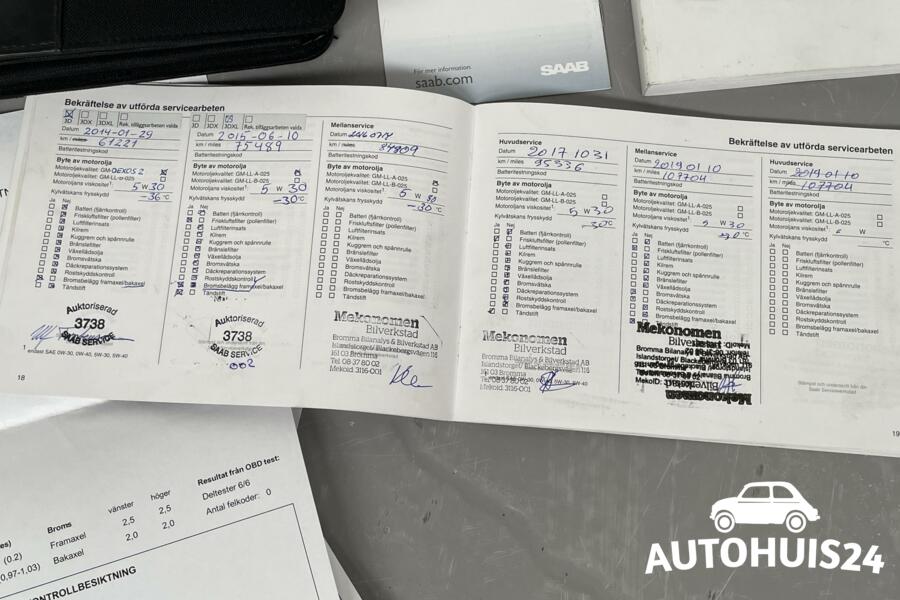 För mer information.
saab.com
SAAB
Bekräftelse av utförda servicearbeten
3D 3DX 3DXL Rek. tilläggsarbeten valda
Datum 2014-01-29
km / miles 61221
Batteritestningskod
Byte av motorolja
Motoroljekvalitet: GM DEXOS 2
Motoroljekvalitet: GM-LL-B-025
Motoroljans viskositet¹: 5 W 30
Kylvätskans frysskydd -36 °C
Ja Nej
Batteri (fjärrkontroll)
Friskluftsfilter (pollenfilter)
Luftfilterinsats
Kilrem
Kuggrem och spännrulle
Bränslefilter
Växellådsolja
Bromsvätska
Däckreparationssystem
Rostskyddskontroll
Bromsbelägg framaxel/bakaxel
Tändstift
Auktoriserad
3738
SAAB SERVICE
1 endast SAE 0W-30, 0W-40, 5W-30, 5W-40
18
3D 3DX 3DXL Rek. tilläggsarbeten valda
Datum 2015-06-10
km / miles 75489
Batteritestningskod
Byte av motorolja
Motoroljekvalitet: GM-LL-A-025
Motoroljekvalitet: GM-LL-B-025
Motoroljans viskositet¹: 5 W 30
Kylvätskans frysskydd -30 °C
Ja Nej
Batteri (fjärrkontroll)
Friskluftsfilter (pollenfilter)
Luftfilterinsats
Kilrem
Kuggrem och spännrulle
Bränslefilter
Växellådsolja
Bromsvätska
Däckreparationssystem
Rostskyddskontroll
Bromsbelägg framaxel/bakaxel
Tändstift
Auktoriserad
3738
SAAB SERVICE
002
Mellanservice
Datum
km / miles
Batteritestningskod
Byte av motorolja
Motoroljekvalitet: GM-LL-A-025
Motoroljekvalitet: GM-LL-B-025
Motoroljans viskositet¹: 5 W 30
Kylvätskans frysskydd -30 °C
Ja Nej
Batteri (fjärrkontroll)
Friskluftsfilter (pollenfilter)
Luftfilterinsats
Kilrem
Kuggrem och spännrulle
Bränslefilter
Växellådsolja
Bromsvätska
Däckreparationssystem
Rostskyddskontroll
Bromsbelägg framaxel/bakaxel
Tändstift
Mekonomen
Bilverkstad
Bromma Bilanalys & Bilverkstad AB
Islandstorget/ Blackebergsvägen 116
161 03 Bromma
Tel 08-37 80 02
Mekoid 3116-001
Bekräftelse av utförda servicearbeten
Huvudservice
Datum 2017 10 31
km / miles 95336
Batteritestningskod
Byte av motorolja
Motoroljekvalitet: GM-LL-A-025
Motoroljekvalitet: GM-LL-B-025
Motoroljans viskositet¹: 5 W 30
Kylvätskans frysskydd -30 °C
Ja Nej
Batteri (fjärrkontroll)
Friskluftsfilter (pollenfilter)
Luftfilterinsats
Kilrem
Kuggrem och spännrulle
Bränslefilter
Växellådsolja
Bromsvätska
Däckreparationssystem
Rostskyddskontroll
Bromsbelägg framaxel/bakaxel
Tändstift
Mekonomen
Bilverkstad
Bromma Bilanalys & Bilverkstad AB
Islandstorget/ Blackebergsvägen 116
161 03 Bromma
Tel 08-37 80 02
Mekoid 3116-001
Mellanservice
Datum 2019 01 10
km / miles 107704
Batteritestningskod
Byte av motorolja
Motoroljekvalitet: GM-LL-A-025
Motoroljekvalitet: GM-LL-B-025
Motoroljans viskositet¹: 5 W 30
Kylvätskans frysskydd -30 °C
Ja Nej
Batteri (fjärrkontroll)
Friskluftsfilter (pollenfilter)
Luftfilterinsats
Kilrem
Kuggrem och spännrulle
Bränslefilter
Växellådsolja
Bromsvätska
Däckreparationssystem
Rostskyddskontroll
Bromsbelägg framaxel/bakaxel
Tändstift
Mekonomen
Bilverkstad
Huvudservice
Datum 2019-01-10
km / miles 107704
Batteritestningskod
Byte av motorolja
Motoroljekvalitet: GM-LL-A-025
Motoroljekvalitet: GM-LL-B-025
Motoroljans viskositet¹: W
Kylvätskans frysskydd °C
Ja Nej
Batteri (fjärrkontroll)
Friskluftsfilter (pollenfilter)
Luftfilterinsats
Kilrem
Kuggrem och spännrulle
Bränslefilter
Växellådsolja
Bromsvätska
Däckreparationssystem
Rostskyddskontroll
Bromsbelägg framaxel/bakaxel
Tändstift
Stämpel och underskrift från din
Saab Serviceverkstad
19
Resultat från OBD test:
Deltester 6/6
Antal felkoder: 0
Broms vänster höger
Framaxel 2,5 2,5
Bakaxel 2,0 2,0
(0.2)
(0,97-1,03)
KONTROLLBESIKTNING
AUTOHUIS24